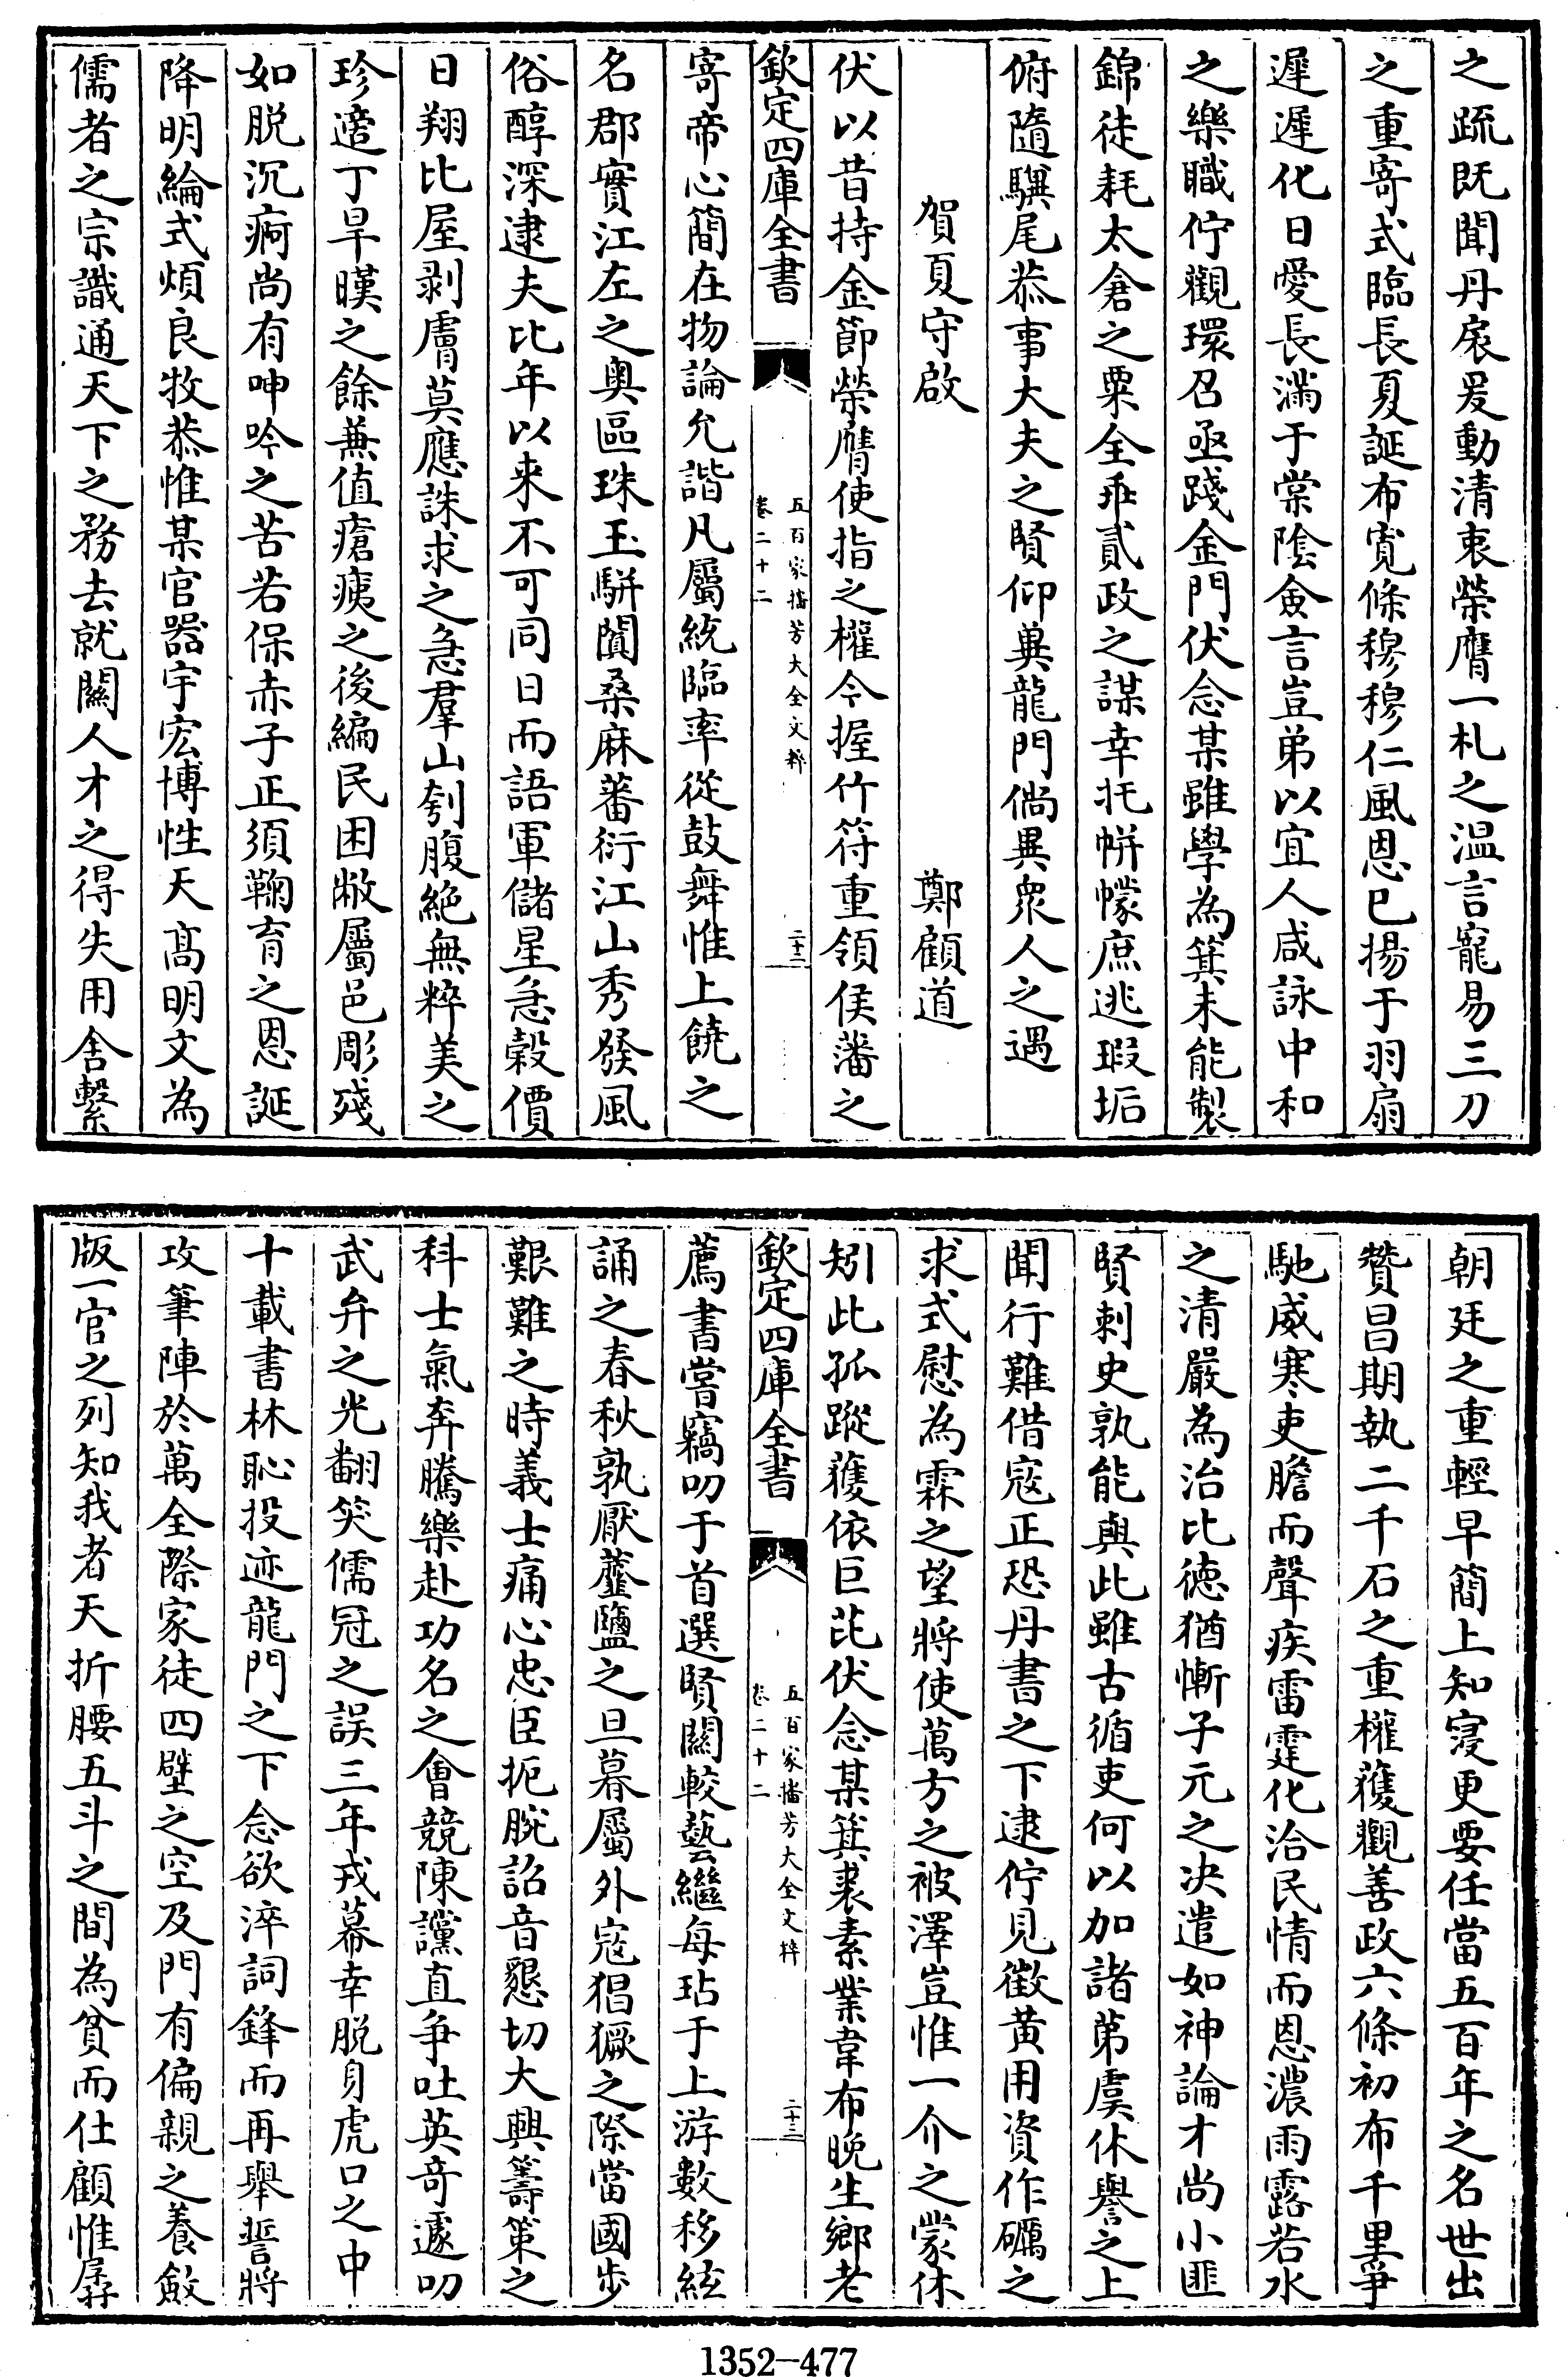 之疏既聞丹扆爰動清衷榮膺一札之温言寵易三刀
之重寄式臨長夏誕布寛條穆穆仁風恩已揚于羽扇
遲遲化日愛長滿于棠陰僉言豈弟以宜人咸詠中和
之樂職佇觀環召亟踐金門伏念某雖學為箕未能製
錦徒耗太倉之粟全乖貳政之謀幸托帡幪庶逃瑕垢
俯隨驥尾恭事大夫之賢仰冀龍門倘異衆人之遇
賀夏守啟 鄭顧道
伏以昔持金節榮膺使指之權今握竹符重領侯藩之
欽定四庫全書 五百家播芳大全文粹 卷二十二 二十二
寄帝心簡在物論允諧凡屬統臨率從鼓舞惟上饒之
名郡實江左之奥區珠玉駢闐桑麻蕃衍江山秀發風
俗醇深逮夫比年以来不可同日而語軍儲星急榖價
日翔比屋剥膚莫應誅求之急羣山刳腹絶無粹美之
珍適丁旱暵之餘兼值瘡痍之後編民困敝屬邑彫殘
如脱沉痾尚有呻吟之苦若保赤子正須鞠育之恩誕
降明綸式煩良牧恭惟某官器宇宏博性天髙明文為
儒者之宗識通天下之務去就關人才之得失用舍繫
朝廷之重輕早簡上知寖更要任當五百年之名世出
贊昌期執二千石之重權獲觀善政六條初布千里爭
馳威寒吏膽而聲疾雷霆化洽民情而恩濃雨露若水
之清嚴為治比徳猶慚子元之决遣如神論才尚小匪
賢刺史孰能與此雖古循吏何以加諸第虞休譽之上
聞行難借寇正恐丹書之下逮佇見徴黄用資作礪之
求式慰為霖之望將使萬方之被澤豈惟一介之蒙休
矧此孤蹤獲依巨芘伏念某箕裘素業韋布晚生鄉老
欽定四庫全書 五百家播芳大全文粹 卷二十二 二十三
薦書嘗竊叨于首選賢關較藝繼每玷于上游數移絃
誦之春秋孰厭虀鹽之旦暮屬外寇猖獗之際當國步
艱難之時義士痛心忠臣扼腕詔音懇切大興籌策之
科士氣奔騰樂赴功名之會競陳讜直争吐英奇遽叨
武弁之光翻笑儒冠之誤三年戎幕幸脱身虎口之中
十載書林恥投迹龍門之下念欲淬詞鋒而再舉誓將
攻筆陣於萬全際家徒四壁之空及門有偏親之養斂
版一官之列知我者天折腰五斗之間為貧而仕顧惟孱
1352-477